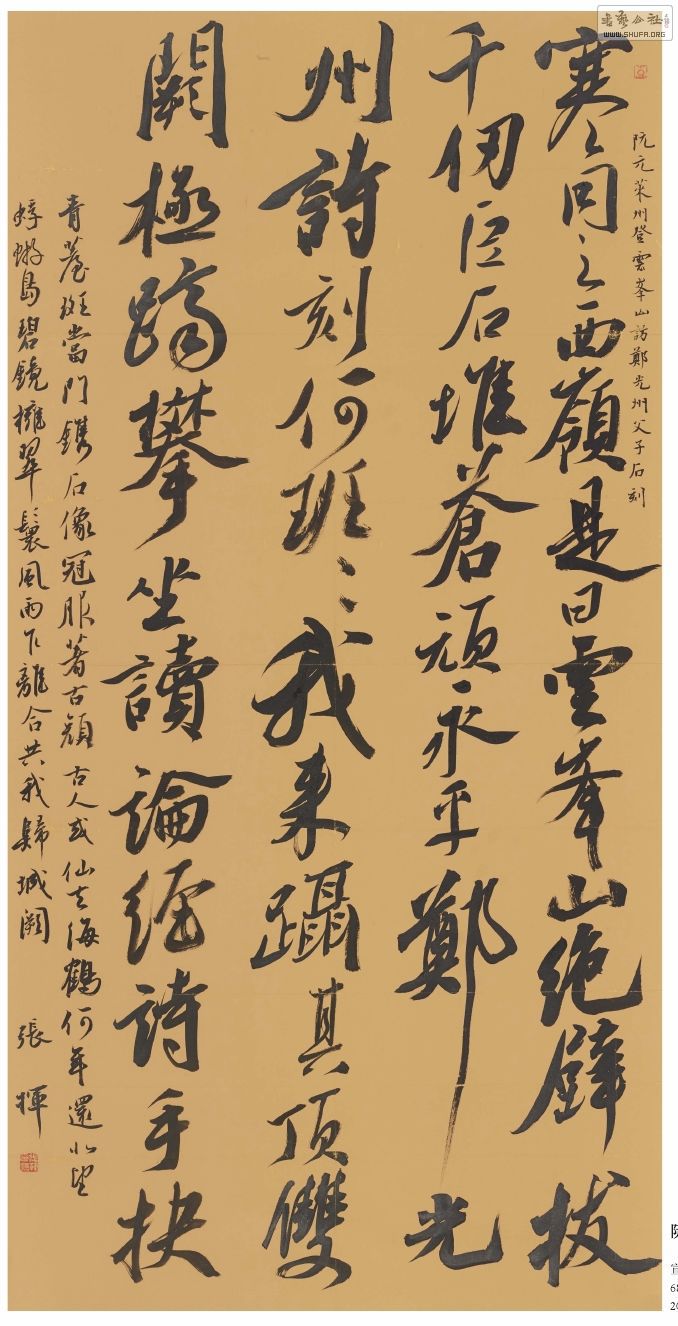 书艺公社
WWW.SHUFA.ORG
阮元萊州登雲峯山訪鄭光州父子石刻
寒同之西嶺是曰雲峯山絕壁拔
千仞巨石堆蒼頑永平鄭光
州詩刻何班〻我来躡其頂雙
闕極躋攀坐讀論經詩手抉
青斑當門鐫石像冠服著古顏古人或仙去海鶴何年還北望
蜉蝣島碧鏡擁翠鬟風雨下離合共我歸城闕
張
宣
68
20